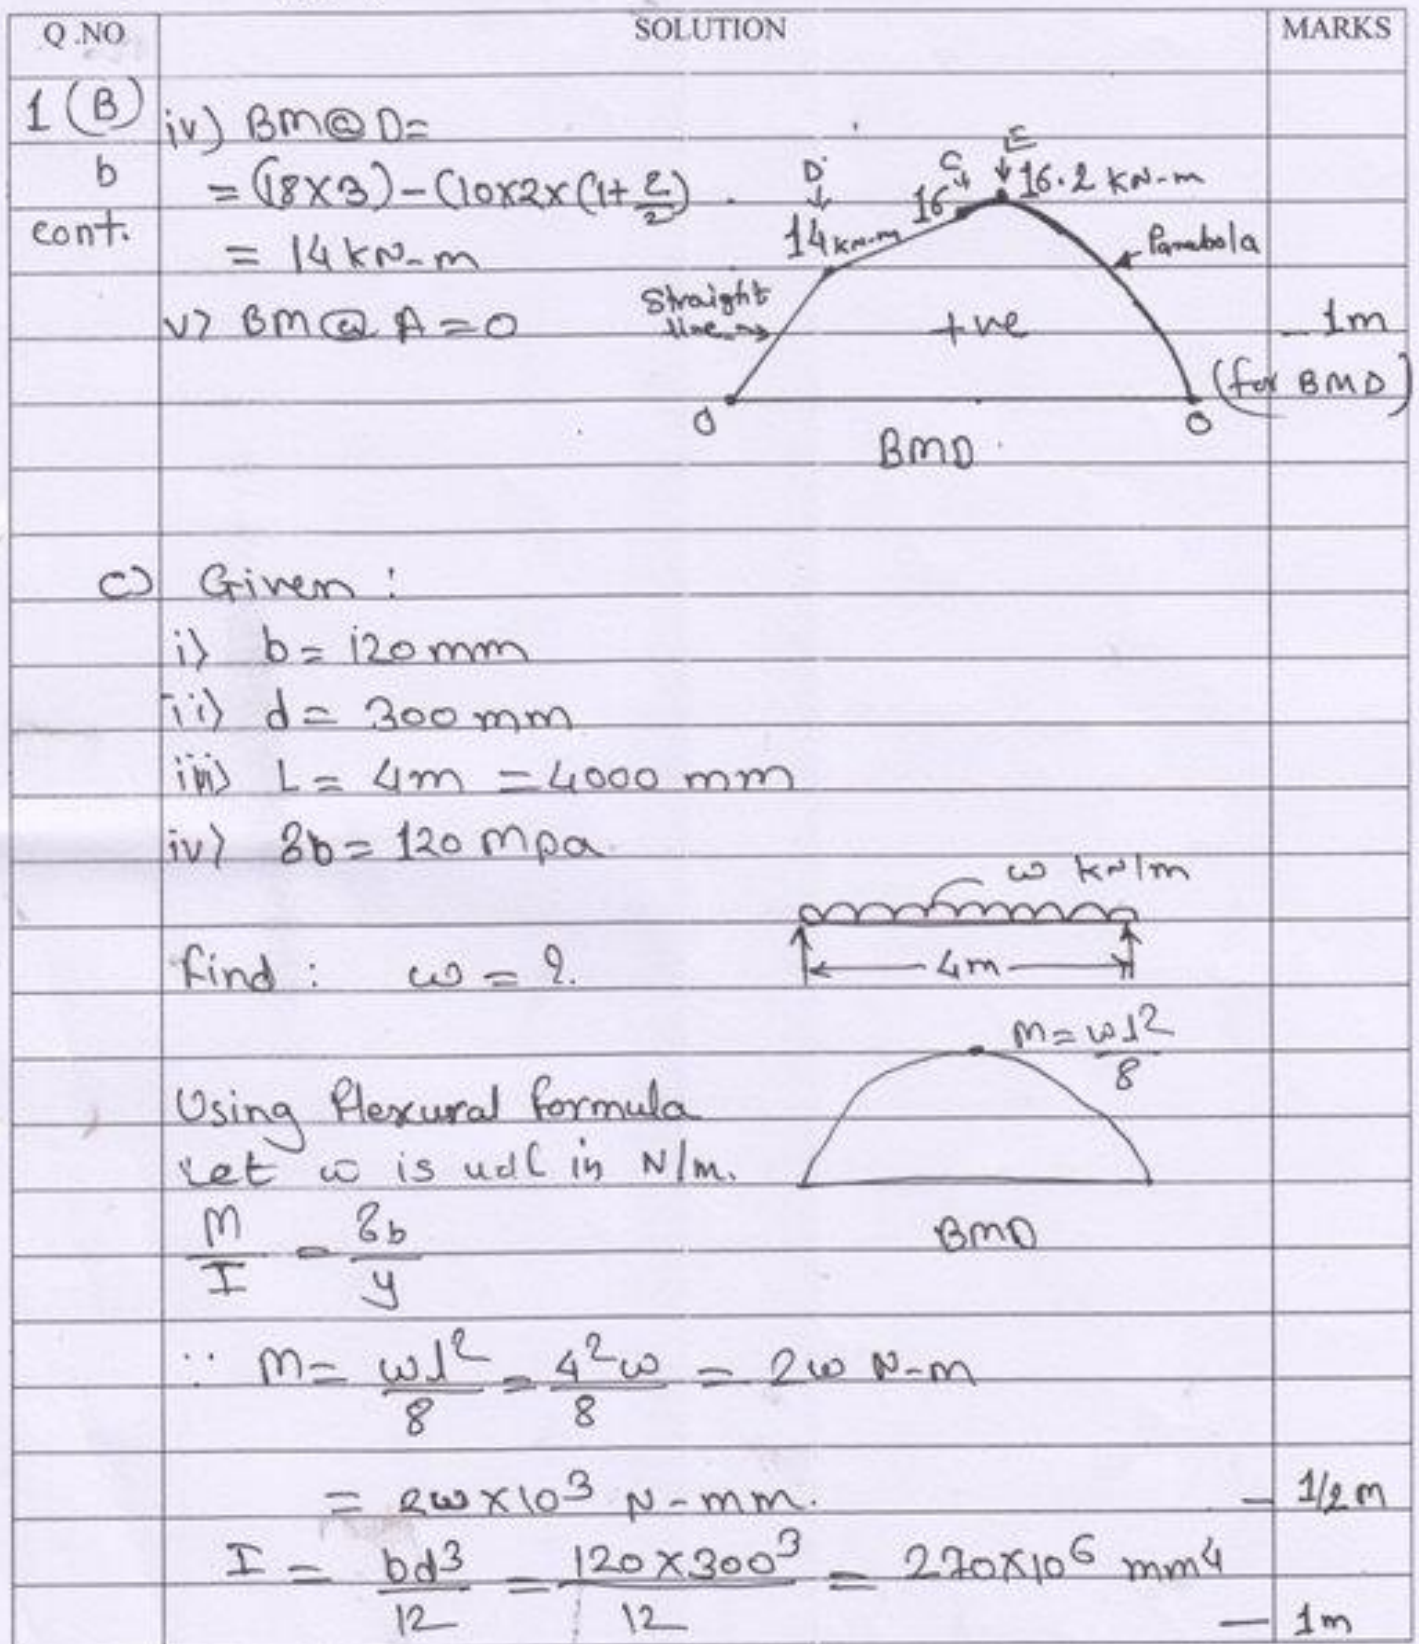 Q.NO SOLUTION MARKS
1 (B) iv) BM@D=
b = (18×3)-(10×2×(1+2/2)
cont. = 14 kN-m
v) BM@ A = 0
D C E
14 kN-m 16 16.2 kN-m
Parabola
Straight line
+ve
- 1m
(for BMD)
0 0
BMD
c) Given :
i) b = 120 mm
ii) d = 300 mm
iii) L = 4m = 4000 mm
iv) 6b = 120 mpa.
ω kN/m
4m
find : ω = ?
M = ωl²/8
Using flexural formula
Let ω is udl in N/m.
BMD
M/I = 6b/y
∴ M = ωl²/8 = 4²ω/8 = 2ω N-m
= 2ω×10³ N-mm. - 1/2 m
I = bd³/12 = 120×300³/12 = 270×10⁶ mm⁴
- 1m